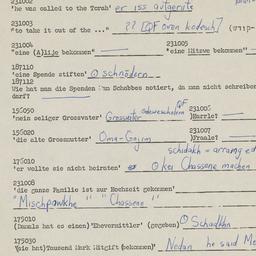 231002
"he was called to the Torah" er iss aufgerufe
231003
"to take it out of the ..." ?? [QF oren kodesch] (
231004
"eine (A)lije bekommen"
231005
"eine Mitzwe bekommen"
187110
"eine Spende stiften" schnodern
187112
Wie hat man die Spenden am Schabbes notiert, da man nicht schreiben
darf?
156050
"mein seliger Grossvater" Grossvater
QF
231006
)Harrle(
156020
"die alte Grossmutter" Oma-Gojim
231007
)Fraale(
schidukh = arranged
176010
"er wollte sie nicht heiraten" Chassene machen
231008
"die ganze Familie ist zur Hochzeit gekommen"
"Mischpowkhe" "Chassene"
175010
(Damals hat es einen)"Ehevermittler" (gegeben) Schadkhn
175030
"(sie hat)Tausend Mark Mitgift (bekommen)" Nedan he said Me